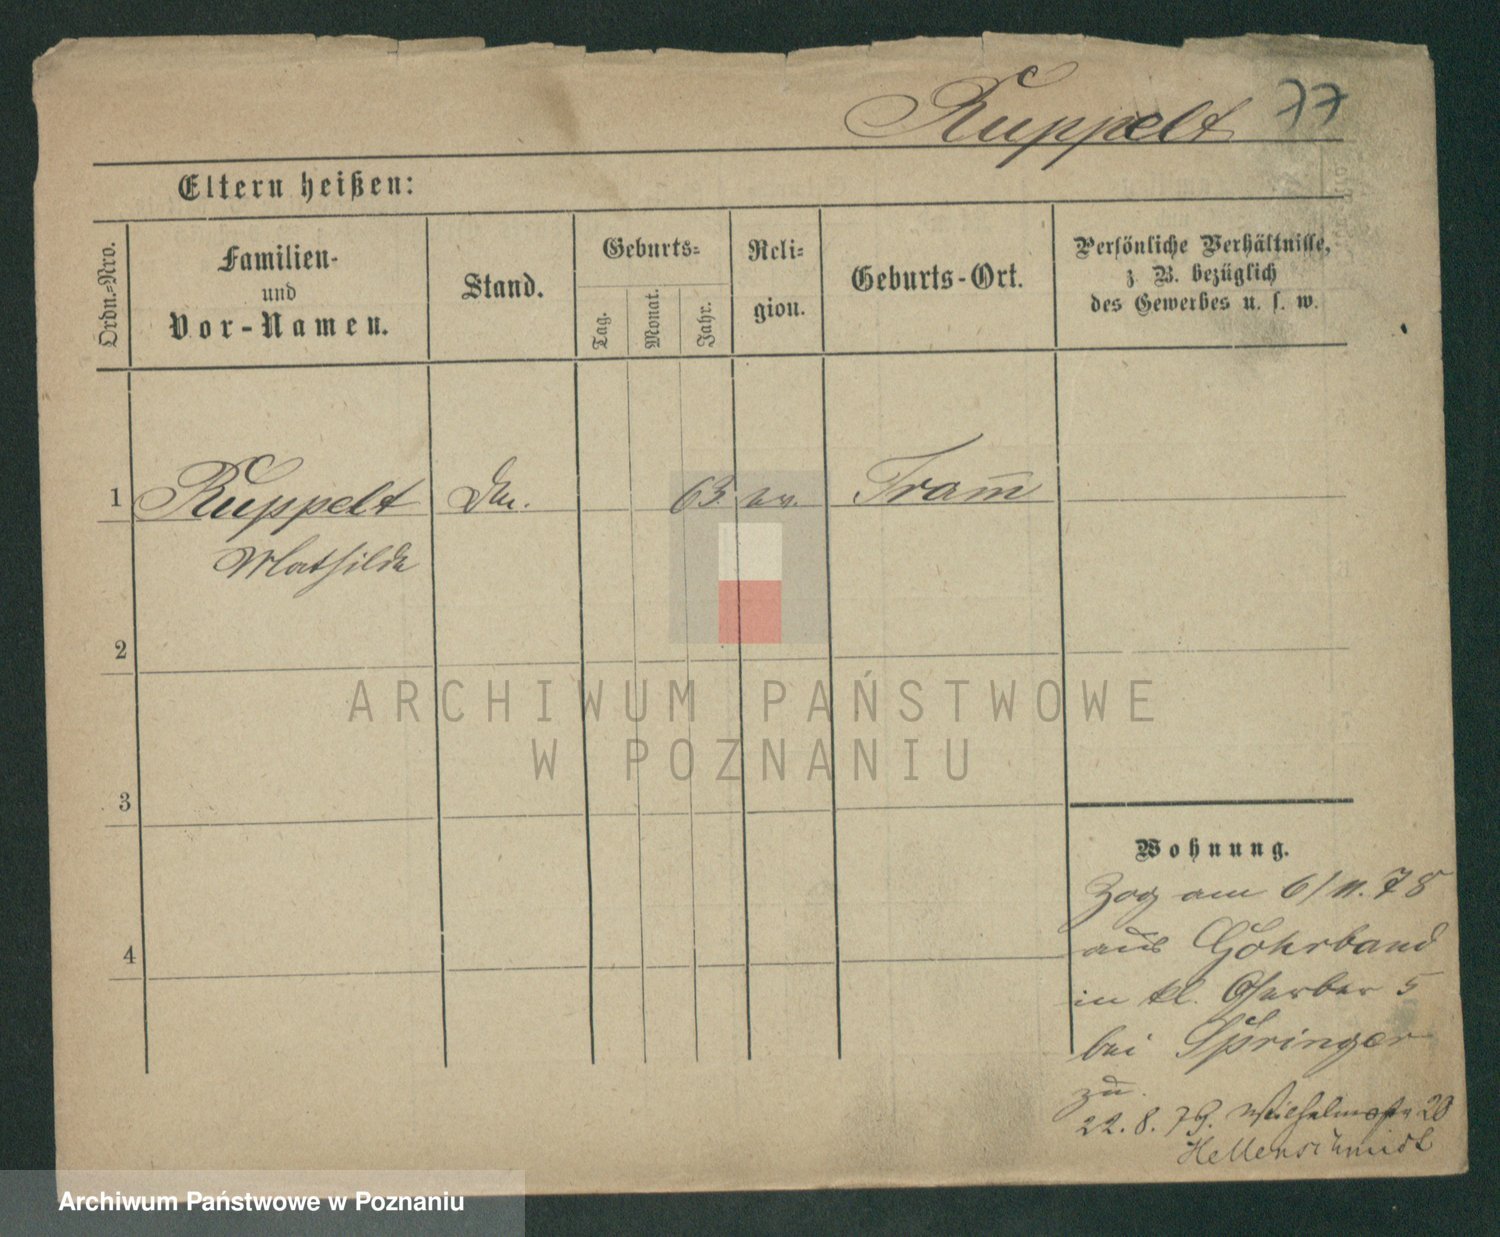 Ruppelt 77
Eltern heißen:
Ordn.=Nro.
Familien-
und
Vor-Namen.
Stand.
Geburts=
Tag.
Monat.
Jahr.
Reli=
gion.
Geburts-Ort.
Persönliche Verhältnisse,
z. B. bezüglich
des Gewerbes u. s. w.
1 Ruppelt 63. ev.
Mathilde
2
3
4
ARCHIWUM PAŃSTWOWE
W POZNANIU
Wohnung.
Zog am 6/11.78
aus Gohrband
in kl. Gerber 5
bei Springer
zu.
22.8.79. Wilhelmstr 20
Hellenschmidt
Archiwum Państwowe w Poznaniu